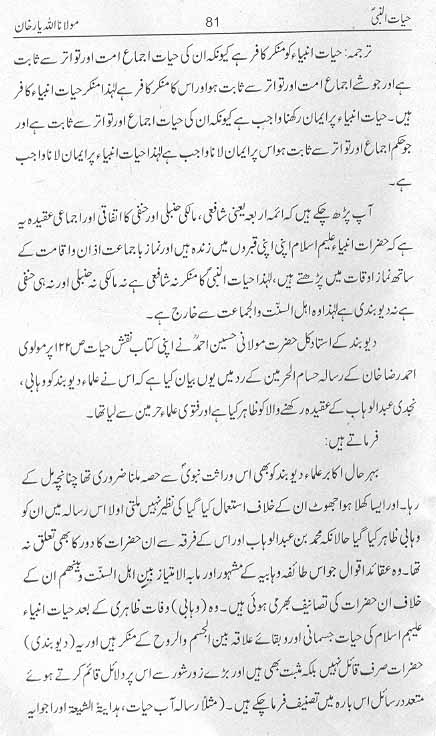 حیات النبیؐ 81 مولانا اللہ یار خان
ترجمہ: حیات انبیاء کو منکر کافر ہے کیونکہ ان کی حیات اجماع امت اور تواتر سے ثابت
ہے اور جو شے اجماع اور تواتر سے ثابت ہو اور اس کا منکر کافر ہے لہٰذا منکر حیات انبیاء کافر
ہیں۔ حیات انبیاء پر ایمان رکھنا واجب ہے کیونکہ ان کی حیات اجماع اور تواتر سے ثابت ہے اور
جو حکم اجماع اور تواتر سے ثابت ہو اس پر ایمان لانا واجب ہے لہٰذا حیات انبیاء پر ایمان لانا واجب
ہے۔
آپ پڑھ چکے ہیں کہ ائمہ اربعہ یعنی شافعی، مالکی حنبلی اور حنفی کا اتفاقی اور اجماعی عقیدہ یہ
ہے کہ حضرات انبیاء علیہم اسلام اپنی اپنی قبروں میں زندہ ہیں اور نماز با جماعت اذان و اقامت کے
ساتھ نماز اوقات میں پڑھتے ہیں، لہٰذا حیات النبیؐ کا منکر نہ شافعی ہے نہ مالکی نہ حنبلی اور نہ ہی حنفی
ہے نہ دیوبندی ہے لہٰذا وہ اہل السنّت والجماعت سے خارج ہے۔
دیوبند کے استاد کل حضرت مولانی حسین احمدؒ نے اپنی کتاب نقش حیات ص ۱۲۲ پر مولوی
احمد رضا خان کے رسالہ حسام الحرمین کے رد میں یوں بیان کیا ہے کہ اس نے علماء دیوبند کو وہابی،
نجدی عبدالوہاب کے عقیدہ رکھنے والا کو ظاہر کیا ہے اور فتویٰ علماء حرمین سے لیا تھا۔
فرماتے ہیں:
بہر حال اکابر علماء دیوبند کو بھی اس وراثت نبویؐ سے حصہ ملنا ضروری تھا چنانچہ مل کے
رہا۔ اور ایسا کھلا ہوا جھوٹ ان کے خلاف استعمال کیا گیا کی نظیر نہیں ملتی اولا اس رسالہ میں ان کو
وہابی ظاہر کیا گیا حالانکہ محمد بن عبدالوہاب اور اس کے فرقہ سے ان حضرات کا دور کا بھی تعلق نہ
تھا۔ وہ عقائد اقوال جو اس طائفہ وہابیہ کے مشہور اور مابہ الامتیاز بین اہل السنّت و بینھم ان کے
خلاف ان حضرات کی تصانیف بھرمی ہوئی ہیں۔ وہ (وہابی) وفات ظاہری کے بعد حیات انبیاء
علیہم اسلام کی حیات جسمانی اور و بقائے علاقہ بین الجسم والروح کے منکر ہیں اور یہ (دیوبندی)
حضرات صرف قائل نہیں بلکہ مثبت بھی ہیں اور بڑے زور شور سے اس پر دلائل قائم کرتے ہوئے
متعدد رسائل اس بارہ میں تصنیف فرما چکے ہیں۔ (مثلاً رسالہ آب حیات، ہدایۃ الشیعۃ اور اجوابہ